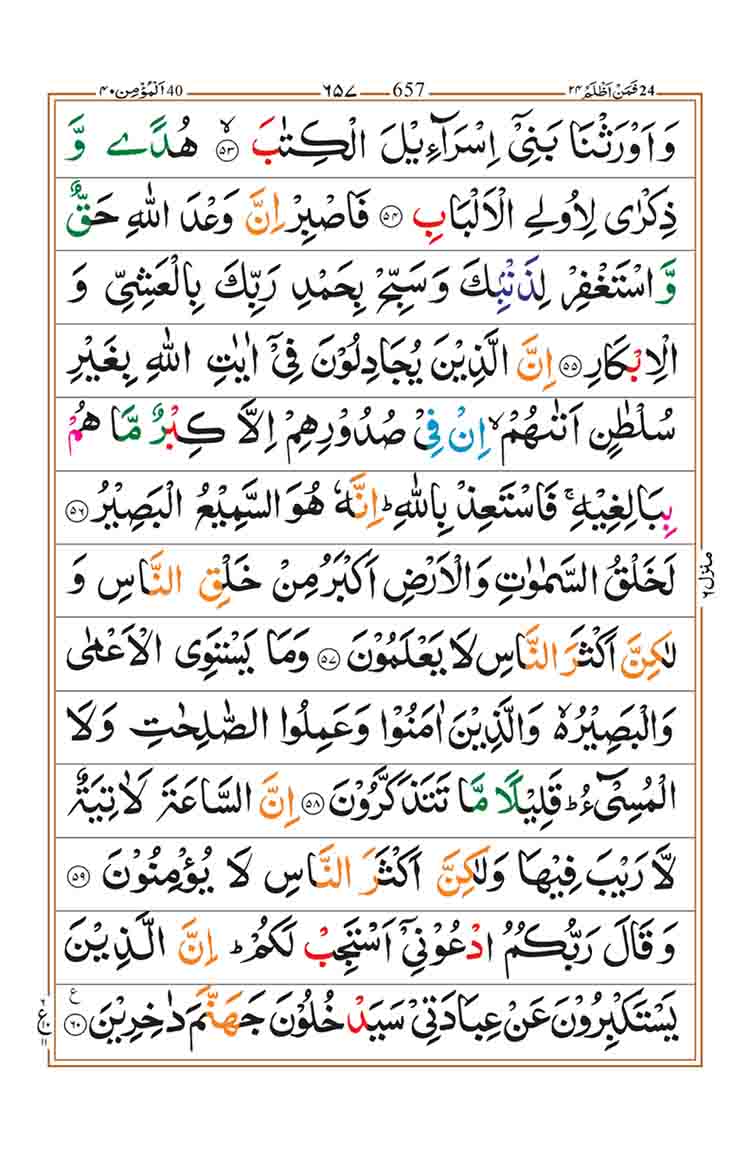 24 فَمَنْ اَظْلَمُ ٢٤ 657 ٦٥٧ 40 اَلْمُؤْمِن ٤٠
وَ اَوْرَثْنَا بَنِیْۤ اِسْرَآءِیْلَ الْكِتٰبَ ۙ﴿۵۳﴾ هُدًی وَّ
ذِكْرٰی لِاُولِی الْاَلْبَابِ ﴿۵۴﴾ فَاصْبِرْ اِنَّ وَعْدَ اللّٰهِ حَقٌّ
وَّ اسْتَغْفِرْ لِذَنْۢبِكَ وَ سَبِّحْ بِحَمْدِ رَبِّكَ بِالْعَشِیِّ وَ
الْاِبْكَارِ ﴿۵۵﴾ اِنَّ الَّذِیْنَ یُجَادِلُوْنَ فِیْۤ اٰیٰتِ اللّٰهِ بِغَیْرِ
سُلْطٰنٍ اَتٰىهُمْ ۙ اِنْ فِیْ صُدُوْرِهِمْ اِلَّا كِبْرٌ مَّا هُمْ
بِبَالِغِیْهِ ۚ فَاسْتَعِذْ بِاللّٰهِ ؕ اِنَّهٗ هُوَ السَّمِیْعُ الْبَصِیْرُ ﴿۵۶﴾
لَخَلْقُ السَّمٰوٰتِ وَ الْاَرْضِ اَكْبَرُ مِنْ خَلْقِ النَّاسِ وَ
لٰكِنَّ اَكْثَرَ النَّاسِ لَا یَعْلَمُوْنَ ﴿۵۷﴾ وَ مَا یَسْتَوِی الْاَعْمٰی
وَ الْبَصِیْرُ ۙ۬ وَ الَّذِیْنَ اٰمَنُوْا وَ عَمِلُوا الصّٰلِحٰتِ وَ لَا
الْمُسِیْٓءُ ؕ قَلِیْلًا مَّا تَتَذَكَّرُوْنَ ﴿۵۸﴾ اِنَّ السَّاعَةَ لَاٰتِیَةٌ
لَّا رَیْبَ فِیْهَا وَ لٰكِنَّ اَكْثَرَ النَّاسِ لَا یُؤْمِنُوْنَ ﴿۵۹﴾
وَ قَالَ رَبُّكُمُ ادْعُوْنِیْۤ اَسْتَجِبْ لَكُمْ ؕ اِنَّ الَّذِیْنَ
یَسْتَكْبِرُوْنَ عَنْ عِبَادَتِیْ سَیَدْخُلُوْنَ جَهَنَّمَ دٰخِرِیْنَ ﴿۶۰﴾ ع
منزل ٦
٦
ع ١٠
١١